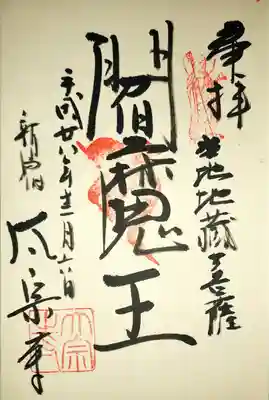 奉拝
本地地蔵菩薩
閻魔王
平成廿八年十二月十六日
新宿
太宗寺